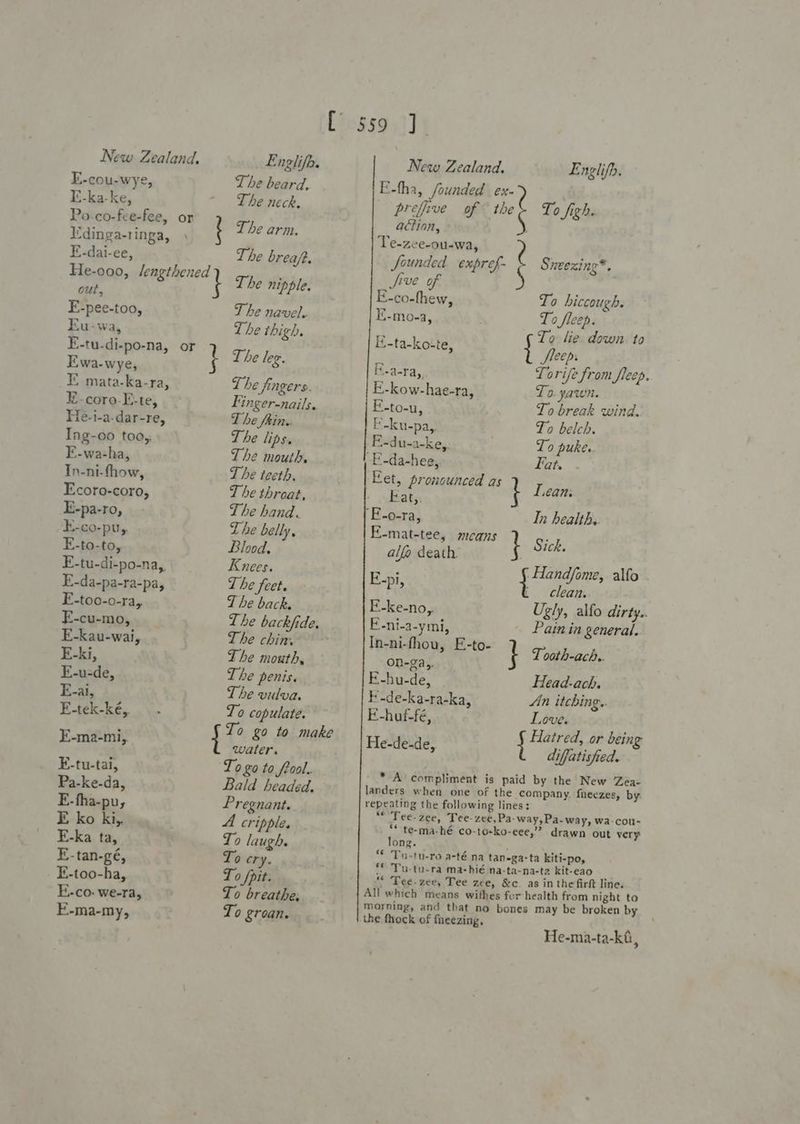 [ 559 ]
New Zealand. Engliſh.
E-cou-wye, The beard.
E-ka-ke, The neck.
Po-co-fee-fee, or
Edinga-ringa, } The arm.
E-dai-ee, The breaſt.
He-ooo, lengthened
out, } The nipple.
E-pee-too, The navel.
Eu-wa, The thigh.
E-tu-di-po-na, or
Ewa-wye, } The leg.
E mata-ka-ra, The fingers.
E-coro-E-te, Finger-nails.
He-i-a-dar-re, The ſkin.
Ing-oo too, The lips.
E-wa-ha, The mouth.
In-ni-ſhow, The teeth.
Ecoro-coro, The throat.
E-pa-ro, The hand.
E-co-pu, The belly.
E-to-to, Blood.
E-tu-di-po-na, Knees.
E-da-pa-ra-pa, The feet.
E-too-o-ra, The back.
E-cu-mo, The backſide.
E-kau-wai, The chin.
E-ki, The mouth.
E-u-de, The penis.
E-ai, The vulva.
E-tek-ké, To copulate.
E-ma-mi, { To go to make
water.
E-tu-tai, To go to ſtool.
Pa-ke-da, Bald headed.
E-ſha-pu, Pregnant.
E ko ki, A cripple.
E-ka ta, To laugh.
E-tan-gé, To cry.
E-too-ha, To ſpit.
E-co-we-ra, To breathe.
E-ma-my, To groan.
New Zealand. Engliſh.
E-ſha, ſounded ex-
preſſive of the } To ſigh.
action,
Te-zee-ou-wa,
ſounded expreſ- } Sneezing*.
ſive of
E-co-ſhew, To hiccough.
E-mo-a, To ſleep.
E-ta-ko-te, { To lie down to
ſleep.
E-a-ra, To riſe from ſleep.
E-kow-hae-ra, To yawn.
E-to-u, To break wind.
E-ku-pa, To belch.
E-du-a-ke, To puke.
E-da-hee, Fat.
Eet, pronounced as
Eat, } Lean.
E-o-ra, In health.
E-mat-tee, means
alſo death } Sick.
E-pi, { Handſome, alſo
clean.
E-ke-no, Ugly, alſo dirty.
E-ni-a-ymi, Pain in general.
In-ni-ſhou, E-to-
on-ga, } Tooth-ach.
E-hu-de, Head-ach.
E-de-ka-ra-ka, An itching.
E-huf-fé, Love.
He-de-de, { Hatred, or being
diſſatisfied.
* A compliment is paid by the New Zea-
landers when one of the company ſneezes, by
repeating the following lines:
“ Tee-zee, Tee-zee, Pa-way, Pa-way, wa-cou-
“ te-ma-hé co-to-ko-eee,” drawn out very
long.
“ Tu-tu-ro a-té na tan-ga-ta kiti-po,
“ Tu-tu-ra ma-hié na-ta-na-ta kit-eao
“ Tee-zee, Tee zee, &c. as in the firſt line.
All which means wiſhes for health from night to
morning, and that no bones may be broken by
the ſhock of ſneezing,
He-ma-ta-kû,